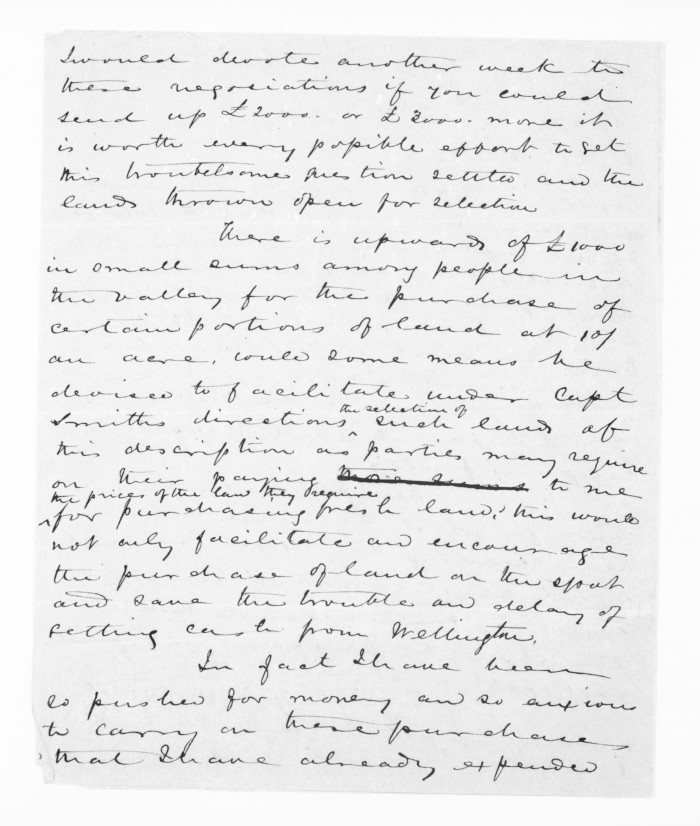 I would devote another week to
these negociations if you could
send up £2000. or £3000. more it
is worth every possible effort to get
this troubelsome question settled and the
lands thrown open for selection
There is upwards of £1000
in small sums among people in
the valley for the purchase of
certain portions of land at 10/
an acre, could some means be
devised to facilitate under Capt
Smiths directions the selection of such lands of
this description as parties may require
on their paying to me
the prices of the land they require
for purchasing fresh land, this would
not only facilitate and encourage
the purchase of land on the spot
and save the trouble and delay of
getting cash from Wellington.
In fact I have been
so pushed for money and so anxious
to carry on these purchases
that I have already expended